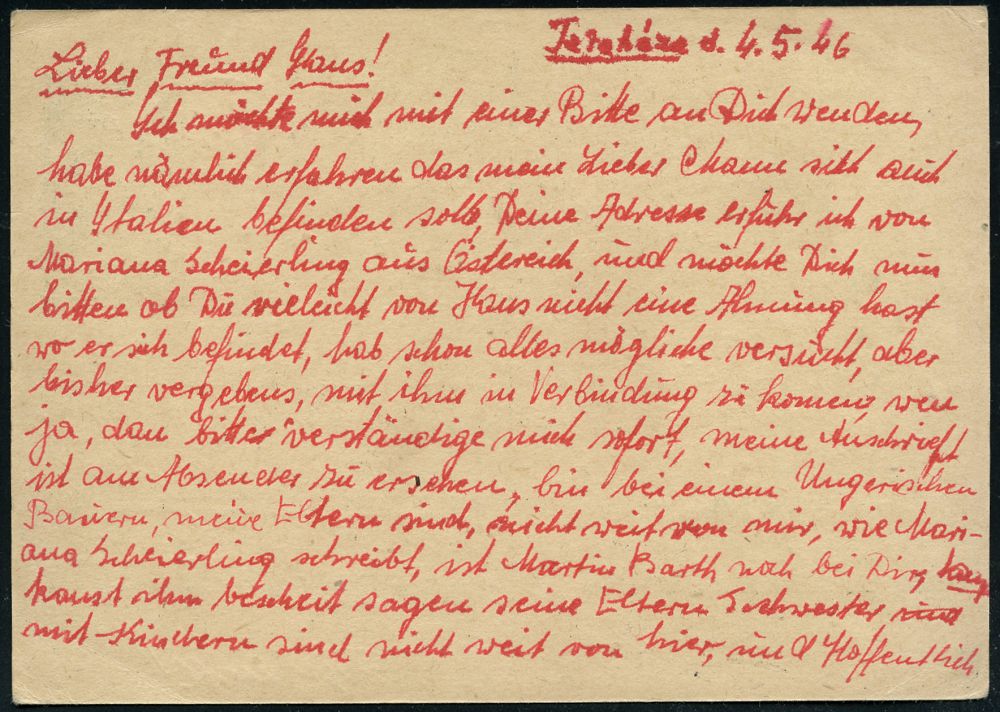 d. 4.5.46
Lieber Freund Haus!
Ich möchte mich mit einer Bitte an Dich wenden,
habe nämlich erfahren das mein Lieber Mann sich auch
in Italien befinden soll, Deine Adresse erfuhr ich von
Mariana Scheierling aus Östereich, und möchte Dich nun
bitten ob Du vieleicht von Haus nicht eine Ahnung hast
wo er sich befindet, hab schon alles mögliche versucht, aber
bisher vergebens, mit ihm in Verbindung zu komen, wen
ja, dan bitter verständige mich sofort, meine Anschrieft
ist am Absender zu ersehen, bin bei einem Ungerischen
Bauern, meine Eltern sind, nicht weit von mir, wie Mari-
ana Scheierling schreibt, ist Martin Barth noch bei Dir,
kanst ihm bescheit sagen seine Eltern Schwester und
mit Kindern sind nicht weit von hier, und Hoffentlich